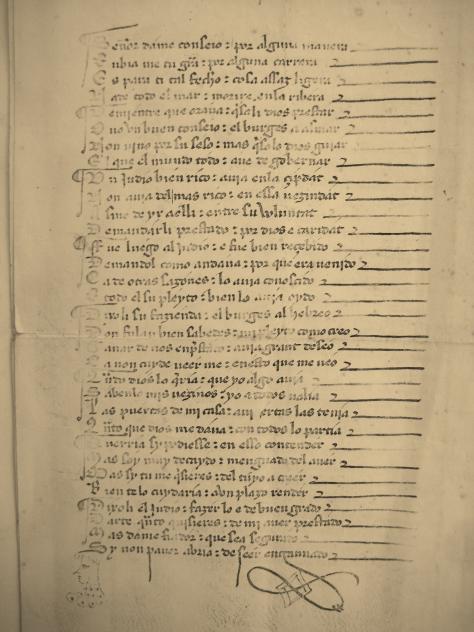 Señor dame conseio : por alguna manera
Enbia me tu gra : por alguna carrera
Es para ti tal fecho : cosa assaz ligera
Nade todo el mar : morire enla ribera
Demientre que oraua : qsoli dios prestar
Ouo vn buen conseio : el burges a asmar
Non vino por su seso : mas qsolo dios guiar
El que el mundo todo : aue de gobernar
Vn iudio bien rico : auia enla cipdat
Non auia del mas rico : en ella uezindat
Asmo de yr aelli : entre su uoluntat
Demandarli prestado : por dios e caridat
Fue luego al iudio : e fue bien recebido
Demandol como andaua : por que era uenido
Ca de otras sazones : lo auia conoscido
E todo el su pleyto : bien lo auia oydo
Diroli su fazienda : el burges al hebreo
Don fulan bien sabedes : mi pleyto como creo
Ganar de uos enprestado : auria grant deseo
Ca non cuyde ueer me : enesto que me ueo
Quando dios lo queria : que yo algo auia
Sabenlo mis uezinos : yo a todos ualia
Las puertas de mi casa : auiertas las tenia
Quanto que dios me daua : con todos lo partia
Querria sy podiesse : en esso contender
Mas soy muy decaydo : menguado del auer
Mas sy tu me quisieres : del tuyo a creer
Bien telo cuydaria : a vn plazo render
Diroli el iudio : fazer lo e de buen grado
Darte quanto quisieres : de mi auer prestado
Mas dame fiador : que sea segurado
Sy non pauor abrio : de seer engannado